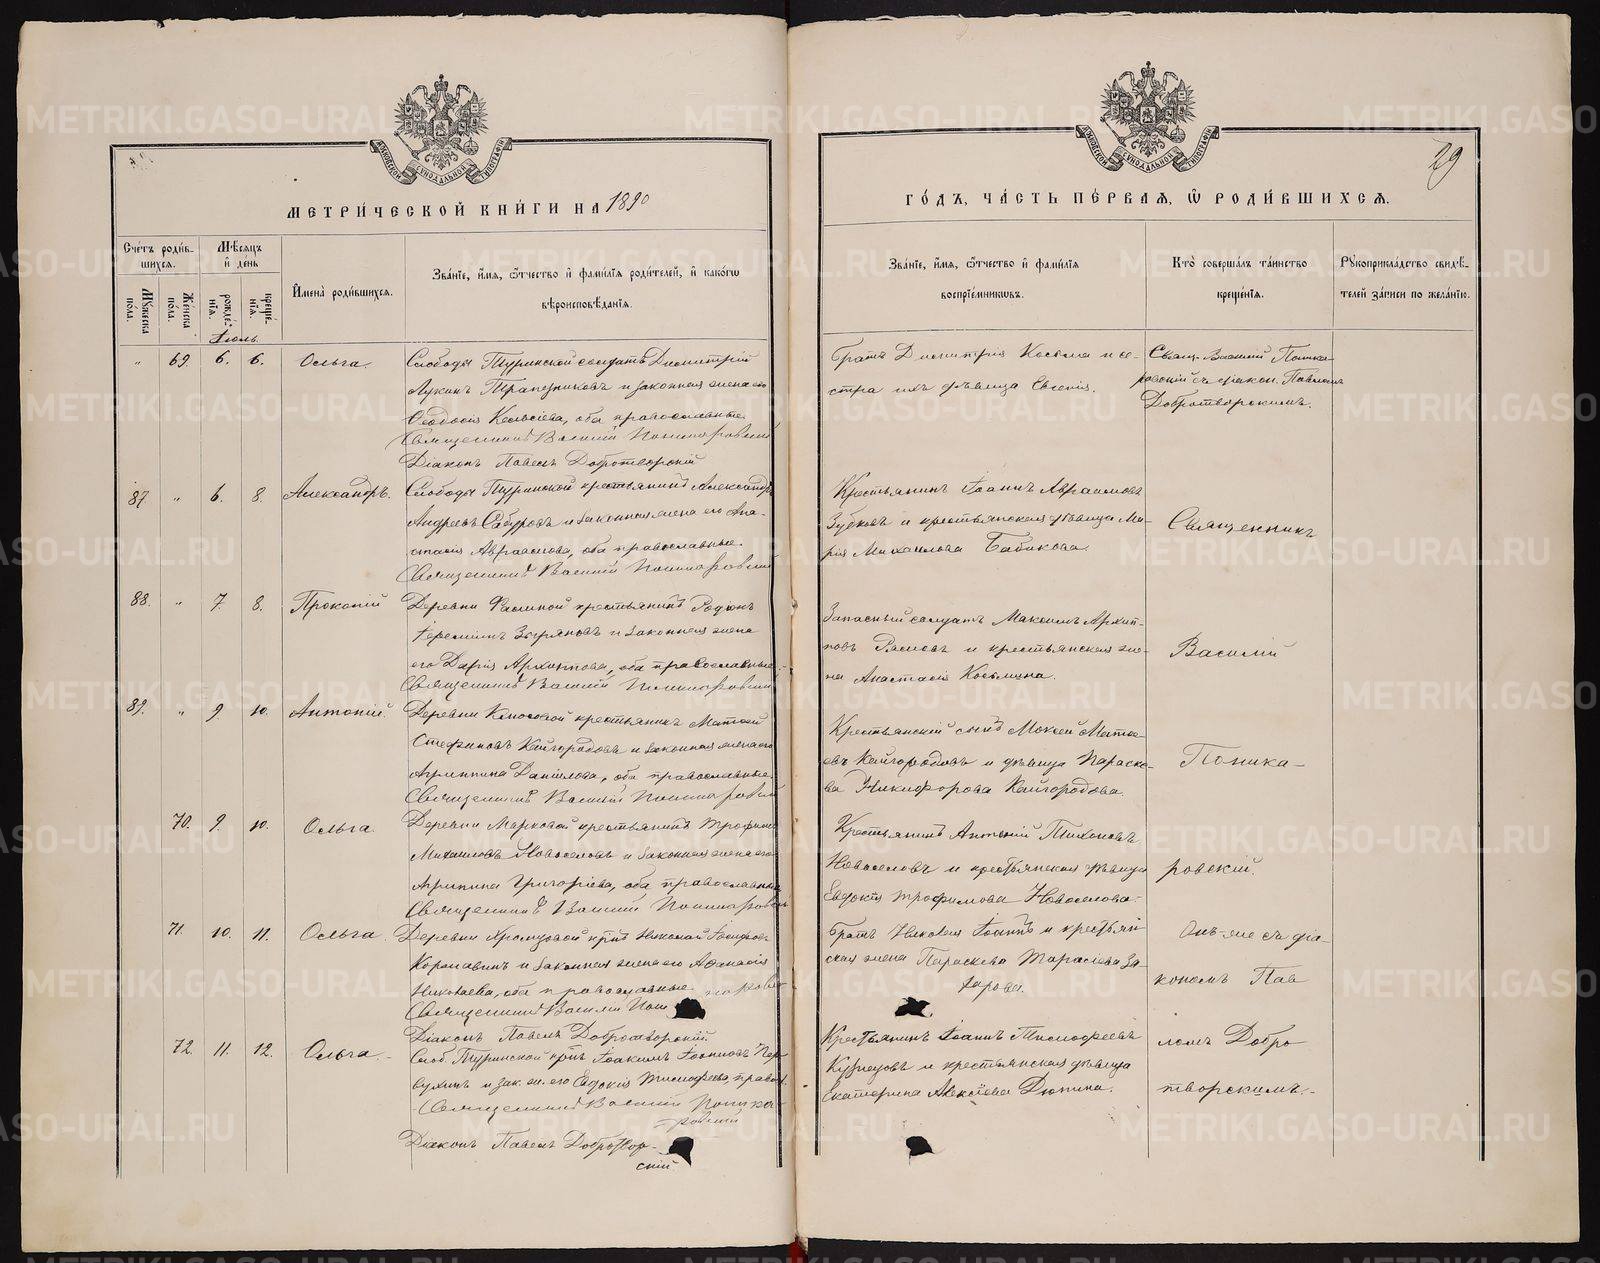 29
МЕТРИ́ЧЕСКОЙ КНИ́ГИ НА 1890
ГО́ДЪ, ЧА́СТЬ ПЕ́РВАЯ, Ѡ РОДИ́ВШИХСЯ.
Сче́тъ роди́в-
шихся.
Мѣ́сяцъ
и де́нь
Мꙋжеска по́ла.
Же́нска по́ла.
рожде́-
нїѧ.
креще́-
нїѧ.
И҆мена̀ роди́вшихсѧ.
Зва́нїе, и҆́мѧ, ѻ҆́тчество и҆ фами́лїѧ роди́телей, и҆ како́гѡ
вѣроисповѣ́данїѧ.
Зва́нїе, и҆́мѧ, ѻ҆́тчество и҆ фами́лїѧ
воспрїе́мникѡвъ.
Кто̀ соверша́лъ та́инство
креще́нїѧ.
Рꙋкоприкла́дство свидѣ́-
телей за́писи по жела́нїю.
Іюль.
" 69. 6. 6. Ольга.
Слободы Туринской солдатъ Димитрій
Лукинъ Трапезниковъ и законная жена его
Ѳеодосія Кельсіева, оба православные.
Священникъ Василій Поникаровскій
Діаконъ Павелъ Добротворскій
Братъ Димитрія Косьма и се-
стра ихъ дѣвица Евгенія.
Свящ. Василій Поника-
ровскій съ діакон. Павломъ
Добротворскимъ.
87. " 6. 8. Александръ.
Слободы Туринской крестьянинъ Александръ
Андреевъ Сабуровъ и законная жена его Ана-
стасія Авраамова, оба православные.
Священникъ Василій Поникаровскій
Крестьянинъ Іоаннъ Авраамовъ
Зубковъ и крестьянская дѣвица Ма-
рія Михаилова Бабикова.
Священникъ
88. " 7. 8. Прокопій
Деревни Фоминой крестьянинъ Родіонъ
Іереміинъ Зыряновъ и законная жена
его Дарія Архиппова, оба православные.
Священникъ Василій Поникаровскій
Запасный солдатъ Максимъ Архип-
повъ и крестьянская же-
на Анастасія Косьмина.
Василій
89. " 9 10. Антоній.
Деревни крестьянинъ Матѳей
Стефановъ Кайгородовъ и законная жена его
Агриппина Данілова, оба православные.
Священникъ Василій Поникаровскій
Крестьянскій сынъ Моисей Матѳе-
евъ Кайгородовъ и дѣвица Параске-
ва Никифорова Кайгородова.
Поника-
70. 9. 10. Ольга.
Деревни Марковой крестьянинъ Трофимъ
Михаиловъ Новоселовъ и законная жена его
Агрипина Григоріева, оба православные
Священникъ Василій Поникаровскій
Крестьянинъ Антоній Тихоновъ
Новоселовъ и крестьянская дѣвица
Евдокія Трофимова Новоселова.
ровскій.
71. 10. 11. Ольга.
Деревни Хромцовой кр́нъ Николай Іосифовъ
Коркавинъ и законная жена его Аѳанасія
Николаева, оба православные.
Священникъ Василій
Діаконъ Павелъ Добротворскій.
Братъ Николая Іоаннъ и крестьян-
ская жена Параскева Тарасіева За-
харова.
Онъ-же съ діа-
кономъ Пав
72. 11. 12. Ольга.
Слоб. Туринской кр́нъ Іоакимъ Іоанновъ Пер-
вухинъ и зак. ж. его Евдокія Тимофеева, правос.
Священникъ Василій Поника-
ровскій
Діаконъ Павелъ Добротвор-
скій.
Крестьянинъ Іоаннъ Тимофеевъ
Кузнецовъ и крестьянская дѣвица
Екатерина Алексіева Дюпина.
ломъ Добро
творскимъ.